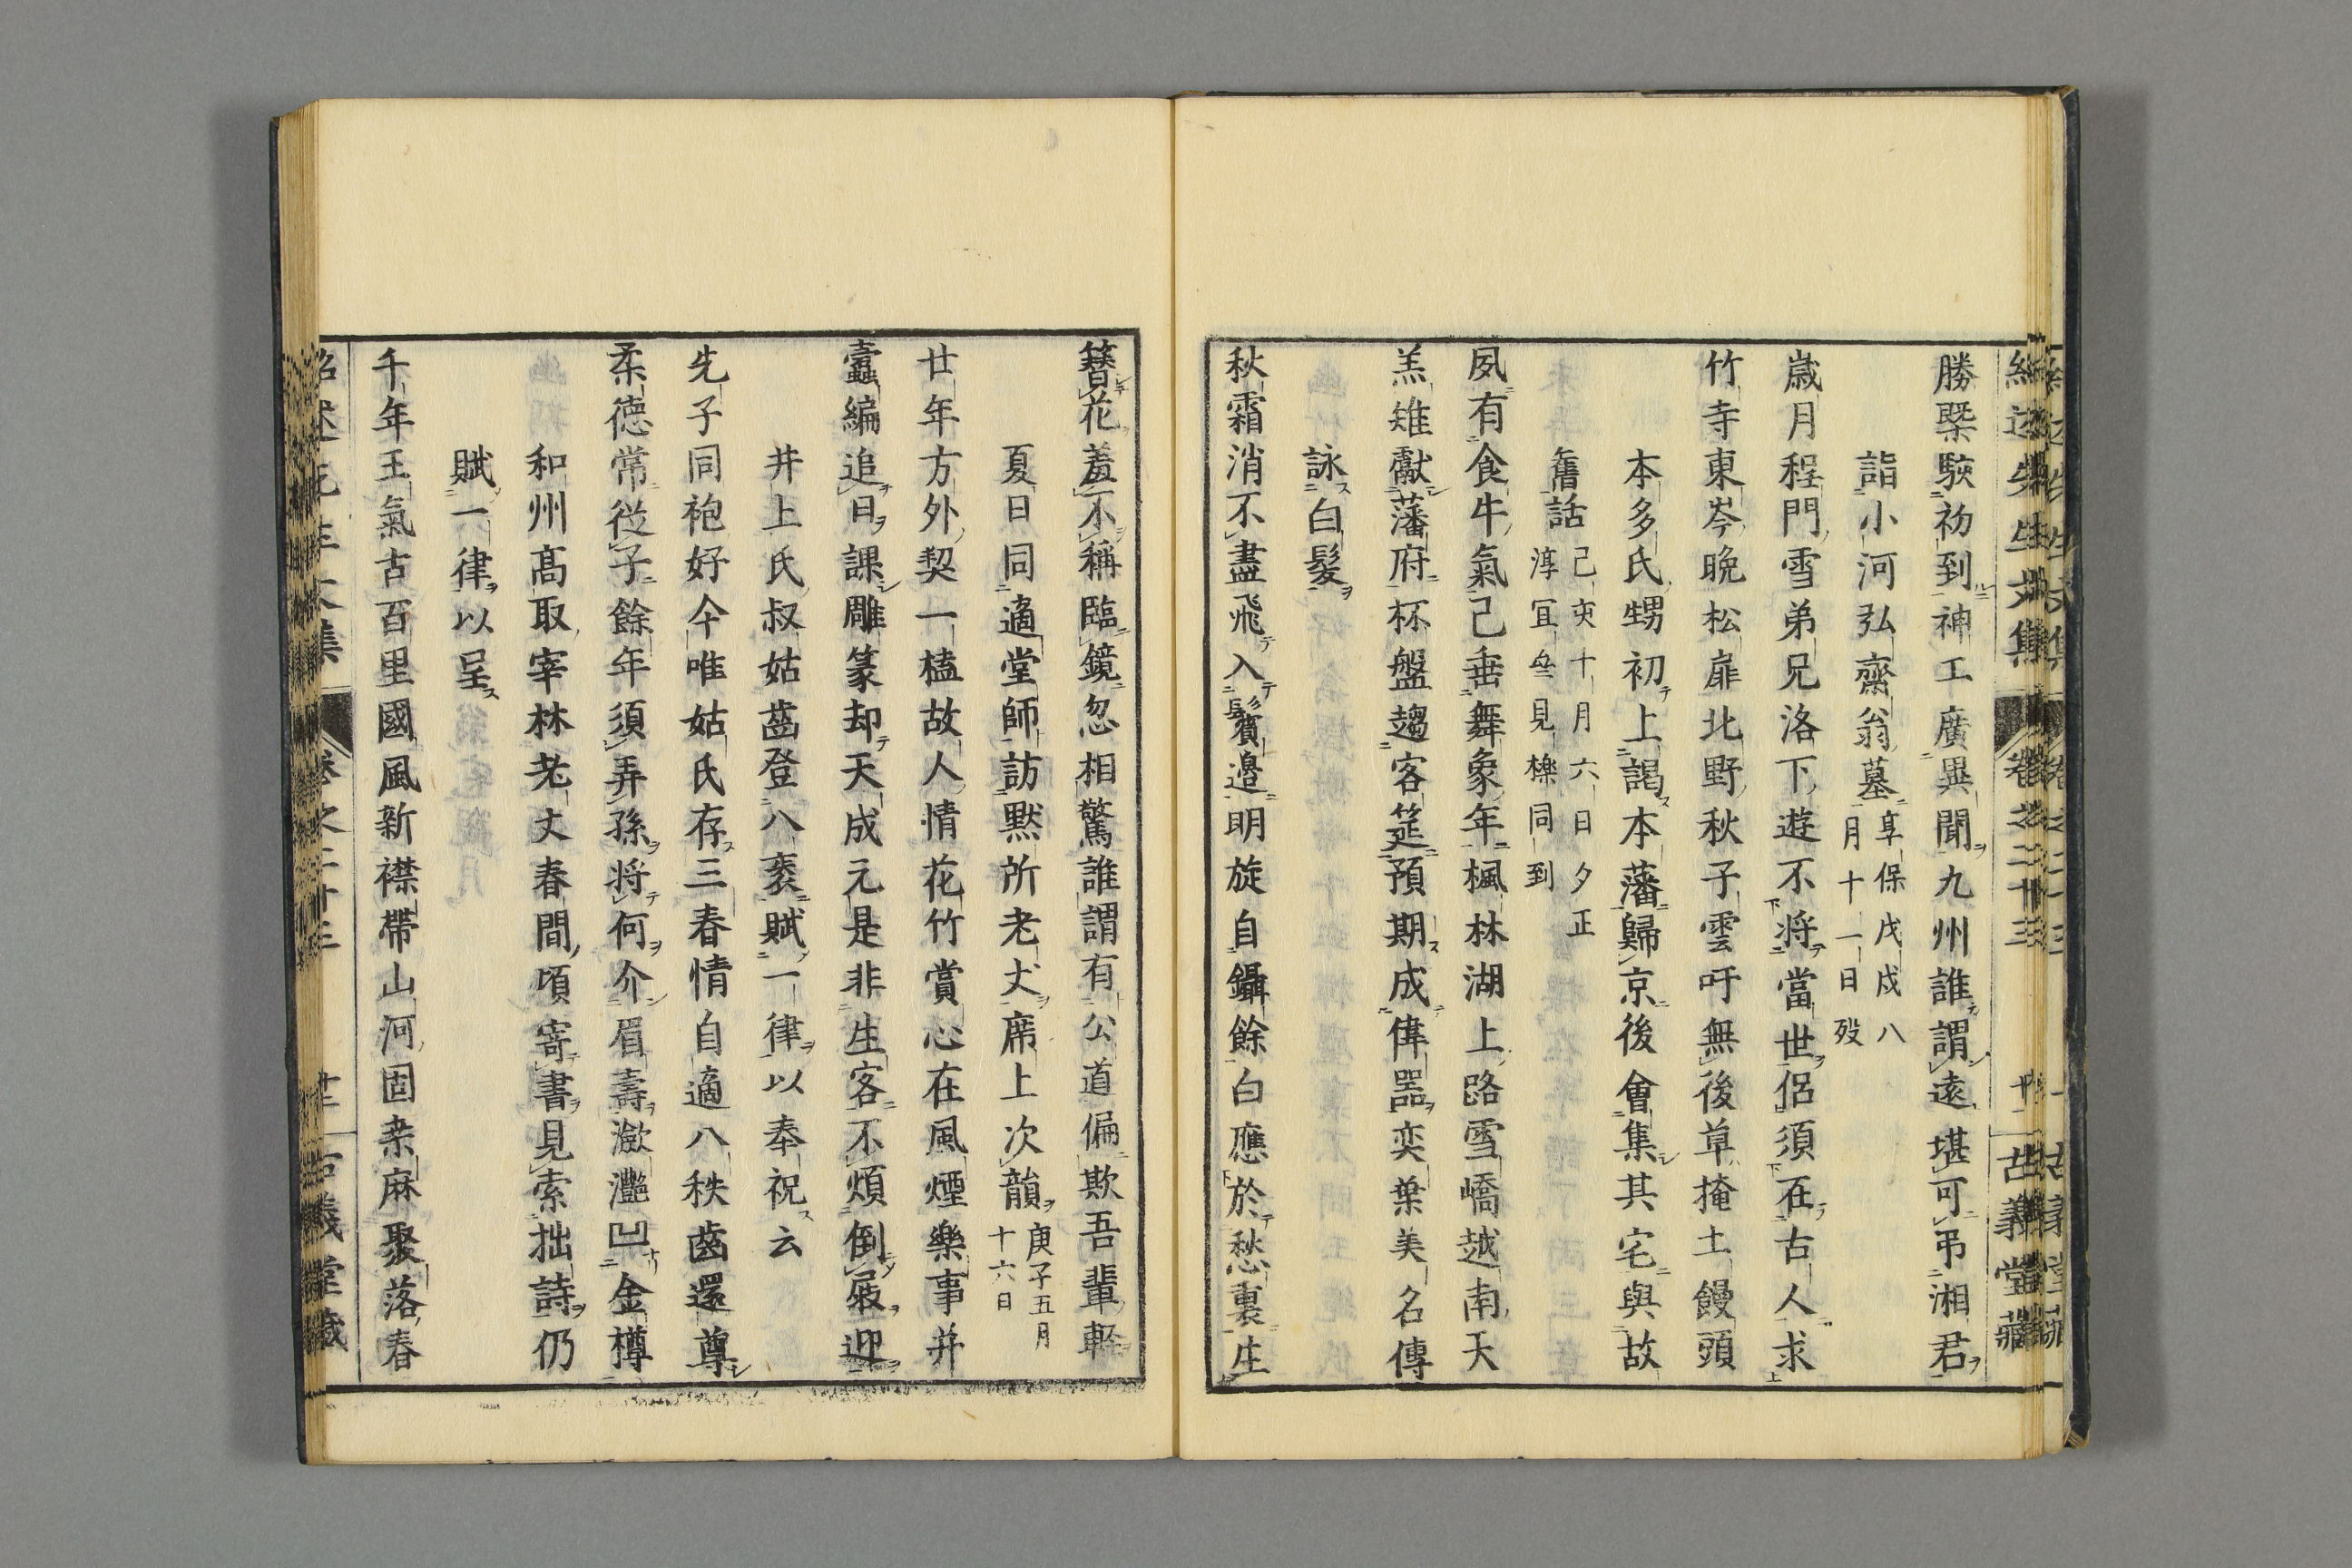 勝槩駛初到神工廣異聞九州誰謂遠堪可弔湘君
詣小河弘齋翁墓
享保戊戌八
月十一日歿
歳月程門雪弟兄洛下遊不將當世侶須在古人求
竹寺東岑晩松扉北野秋子雲吁無後草掩土饅頭
本多氏甥初上謁本藩歸京後會集其宅與故
舊話
己亥十月六日夕正
淳宜叄見櫟同到
夙有食牛氣已垂舞象年楓林湖上路雪嶠越南天
羔雉獻藩府杯盤趨客筵預期成偉器奕葉美名傳
詠白髮
秋霜消不盡飛入鬢邊明旋自鑷餘白應於愁裏生
簪花羞不稱臨鏡忽相驚誰謂有公道偏欺吾輩輕
夏日同適堂師訪默所老丈席上次韻
庚子五月
十六日
廿年方外契一榼故人情花竹賞心在風煙樂事幷
蠹編追日課雕篆却天成元是非生客不煩倒屐迎
井上氏叔姑齒登八袠賦一律以奉祝云
先子同袍好今唯姑氏存三春情自適八秩齒還尊
柔德常從子餘年須弄孫將何介眉壽瀲灩凹金樽
和州高取宰林老丈春間頃寄書見索拙詩仍
賦一律以呈
千年王氣古百里國風新襟帶山河固桑麻聚落春